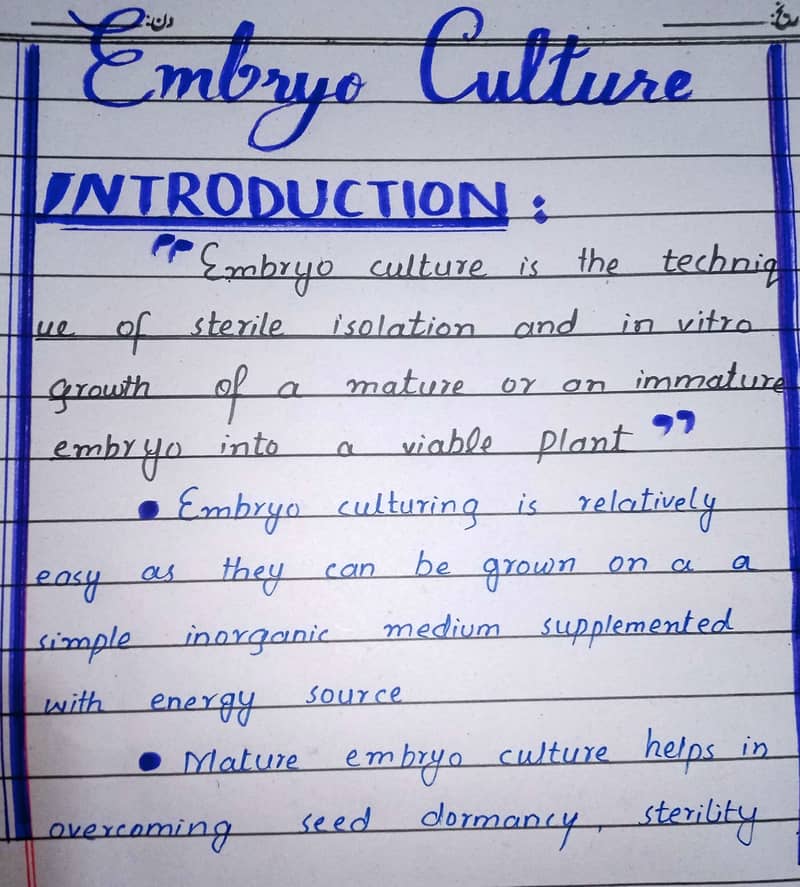 دن:
تاریخ:
Embryo Culture
INTRODUCTION :
" Embryo culture is the techniq
ue of sterile isolation and in vitro
growth of a mature or an immature
embryo into a viable plant "
• Embryo culturing is relatively
easy as they can be grown on a a
simple inorganic medium supplemented
with energy source
• Mature embryo culture helps in
overcoming seed dormancy, sterility